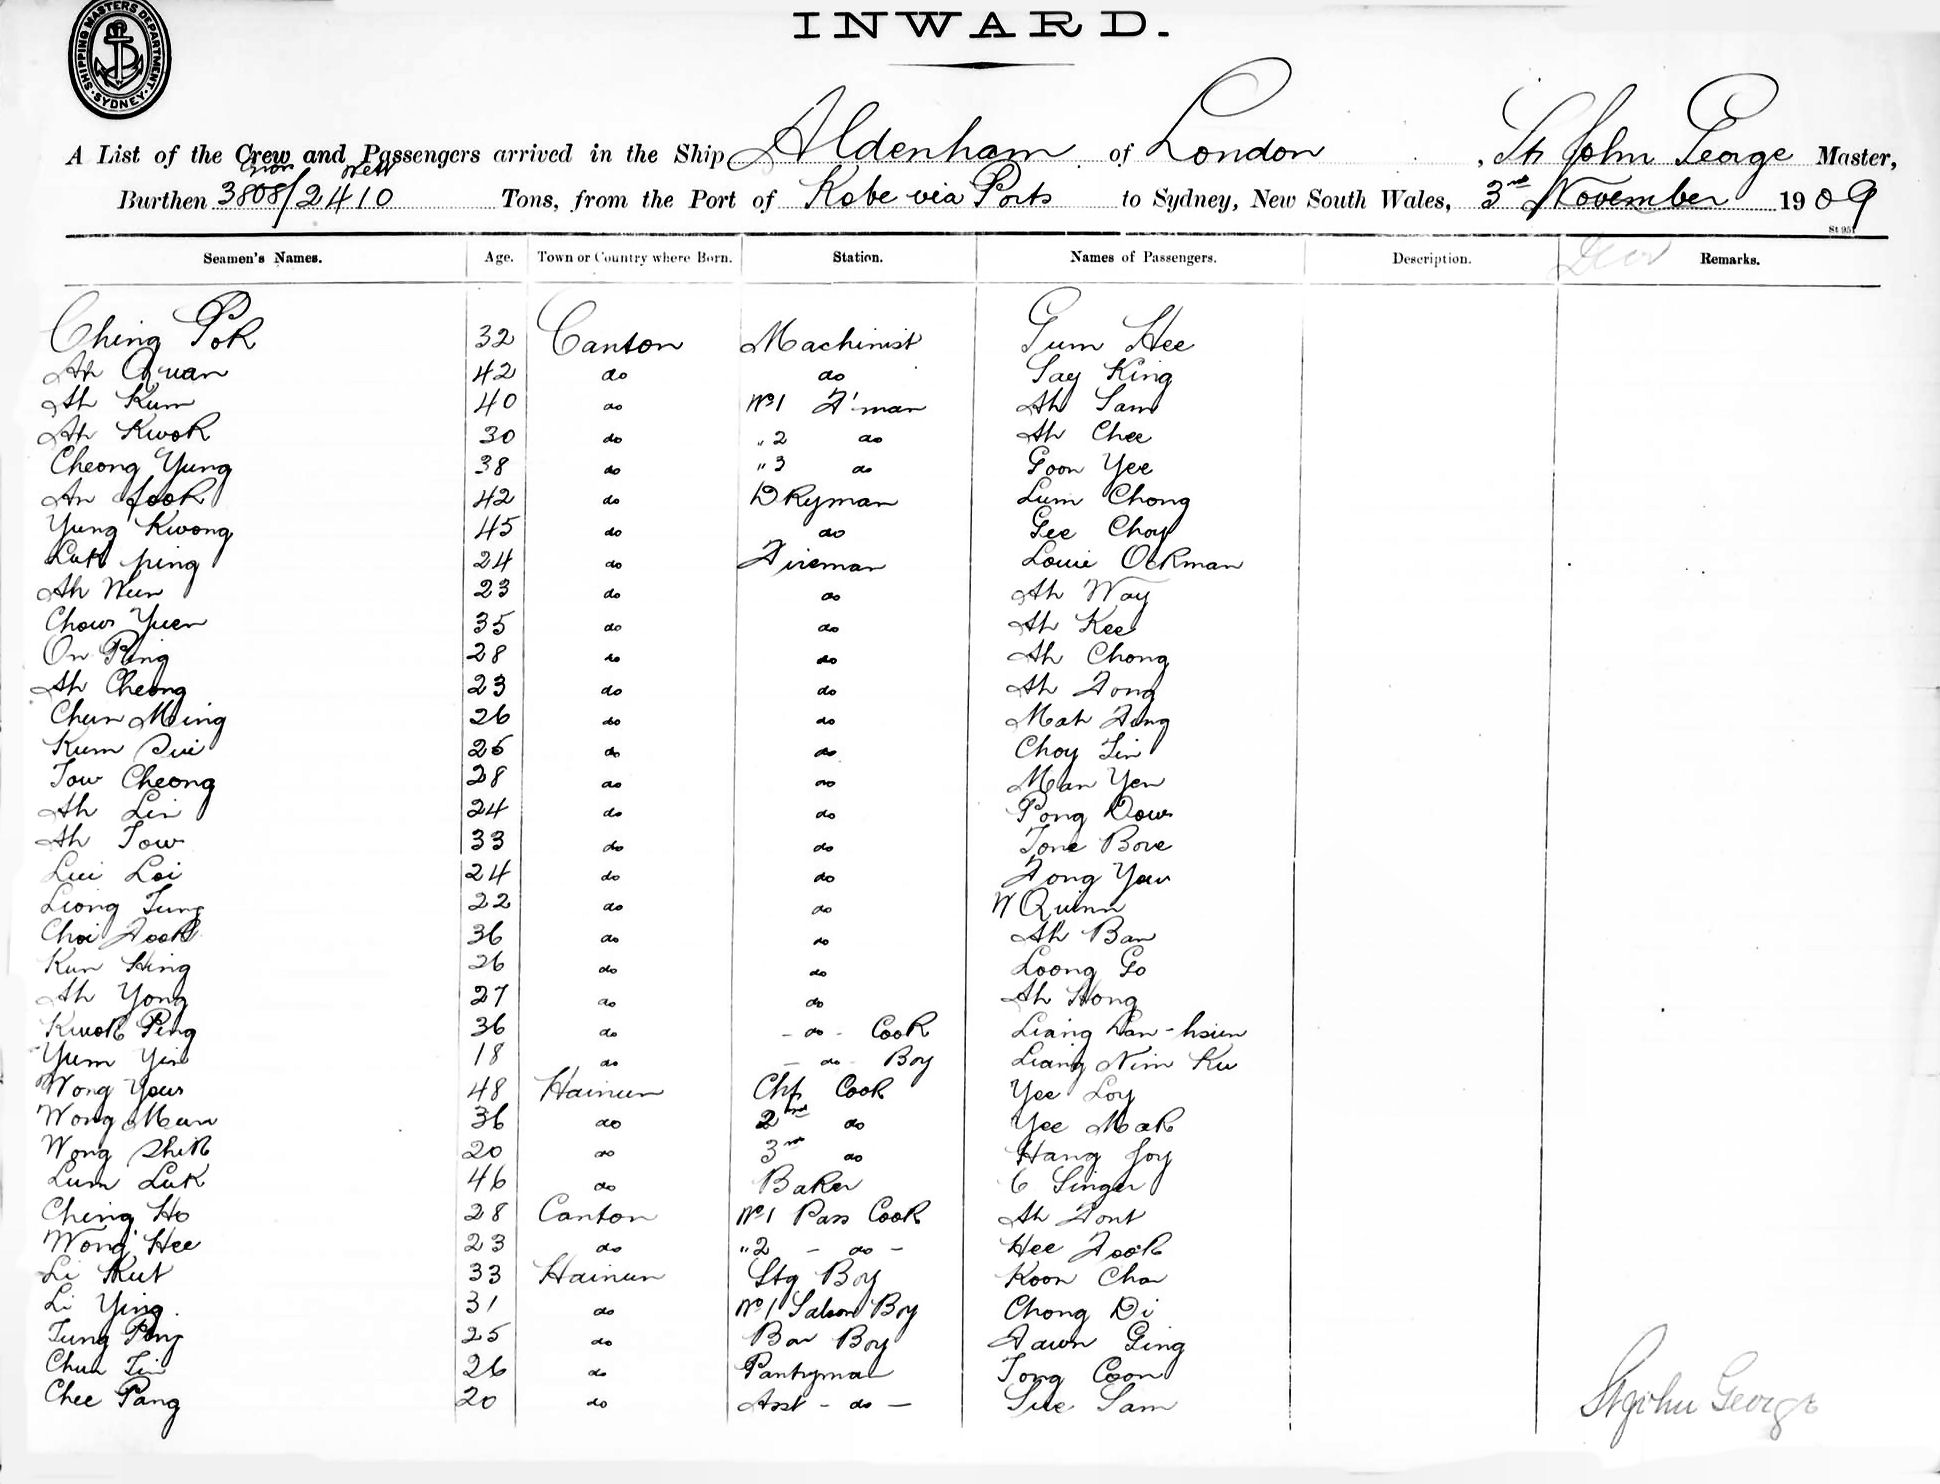 INWARD.
SHIPPING MASTERS DEPARTMENT SYDNEY
A List of the Crew and Passengers arrived in the Ship Aldenham of London, St John George Master,
Burthen Gross 3808/2410 Nett Tons, from the Port of Kobe via Ports to Sydney, New South Wales, 3rd November 1909
St 951
Seamen's Names. Age. Town or Country where Born. Station. Names of Passengers. Description. Remarks.
Ching Pok 32 Canton Machinist Gum Hee
Ah Quan 42 do do Say King
Ah Kum 40 do No 1 F'man Ah Sam
Ah Kwok 30 do " 2 do Ah Chee
Cheong Yung 38 do " 3 do Goon Yee
Ah Fook 42 do DKyman Lum Chong
Yung Kwong 45 do do Gee Choy
Luk ping 24 do Fireman Louie Ockman
Ah Wun 23 do do Ah Way
Chow Yuen 35 do do Ah Kee
On Ping 28 do do Ah Chong
Ah Cheong 23 do do Ah Fong
Chun Ming 26 do do Mah Fong
Kum Sui 25 do do Choy Tin
Tow Cheong 28 do do Man Yen
Ah Lin 24 do do Pong Dow
Ah Tow 33 do do Tone Bow
Lui Loi 24 do do Fong Yow
Liong Tung 22 do do W Quinn
Choi Fook 36 do do Ah Ban
Kun Hing 26 do do Loong Go
Ah Yong 27 do do Ah Hong
Kwok Ping 36 do - do - Cook Liang Lan-hsiun
Yum Yin 18 do - do - Boy Liang Nim Ku
Wong Yow 48 Hainun Chf Cook Yee Loy
Wong Mun 36 do 2nd do Yee Mak
Wong Shik 20 do 3rd do Hang Joy
Lum Luk 46 do Baker C Singer
Ching Ho 28 Canton No 1 Pass Cook Ah Font
Wong Hee 23 do " 2 - do - Hee Fook
Li Kut 33 Hainun Stg Boy Koon Cha
Li Ying. 31 do No 1 Saloon Boy Chong Di
Tung Ping 25 do Bar Boy Fawn Ging
Chun Tin 26 do Pantryman Tong Coon
Chee Pang 20 do Asst - do - Sue Sam
St John George